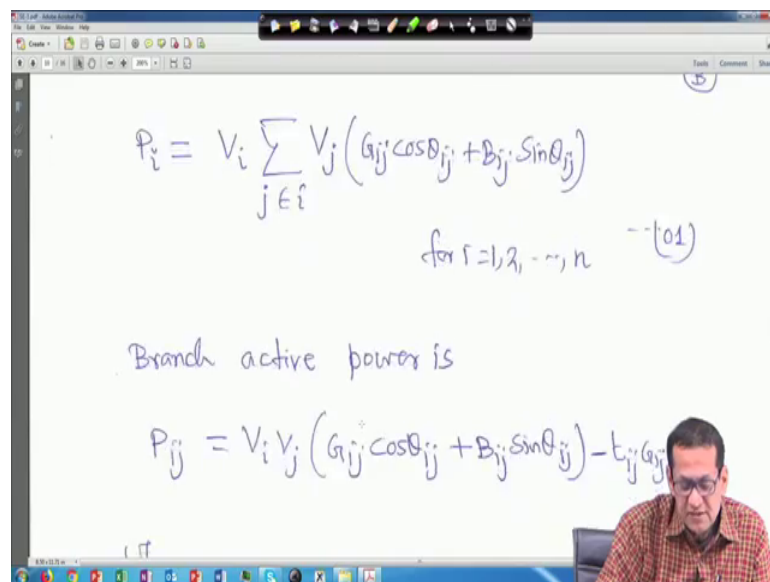 SE.3.pdf - Adobe Acrobat Pro
File Edit View Window Help
Create
Tools Comment Share
B
P_i = V_i ∑_{j∈i} V_j (G_ij cosθ_ij + B_ij sinθ_ij)
for i=1, 2, ..., n --(01)
Branch active power is
P_ij = V_i V_j (G_ij cosθ_ij + B_ij sinθ_ij) - t_ij G_ij